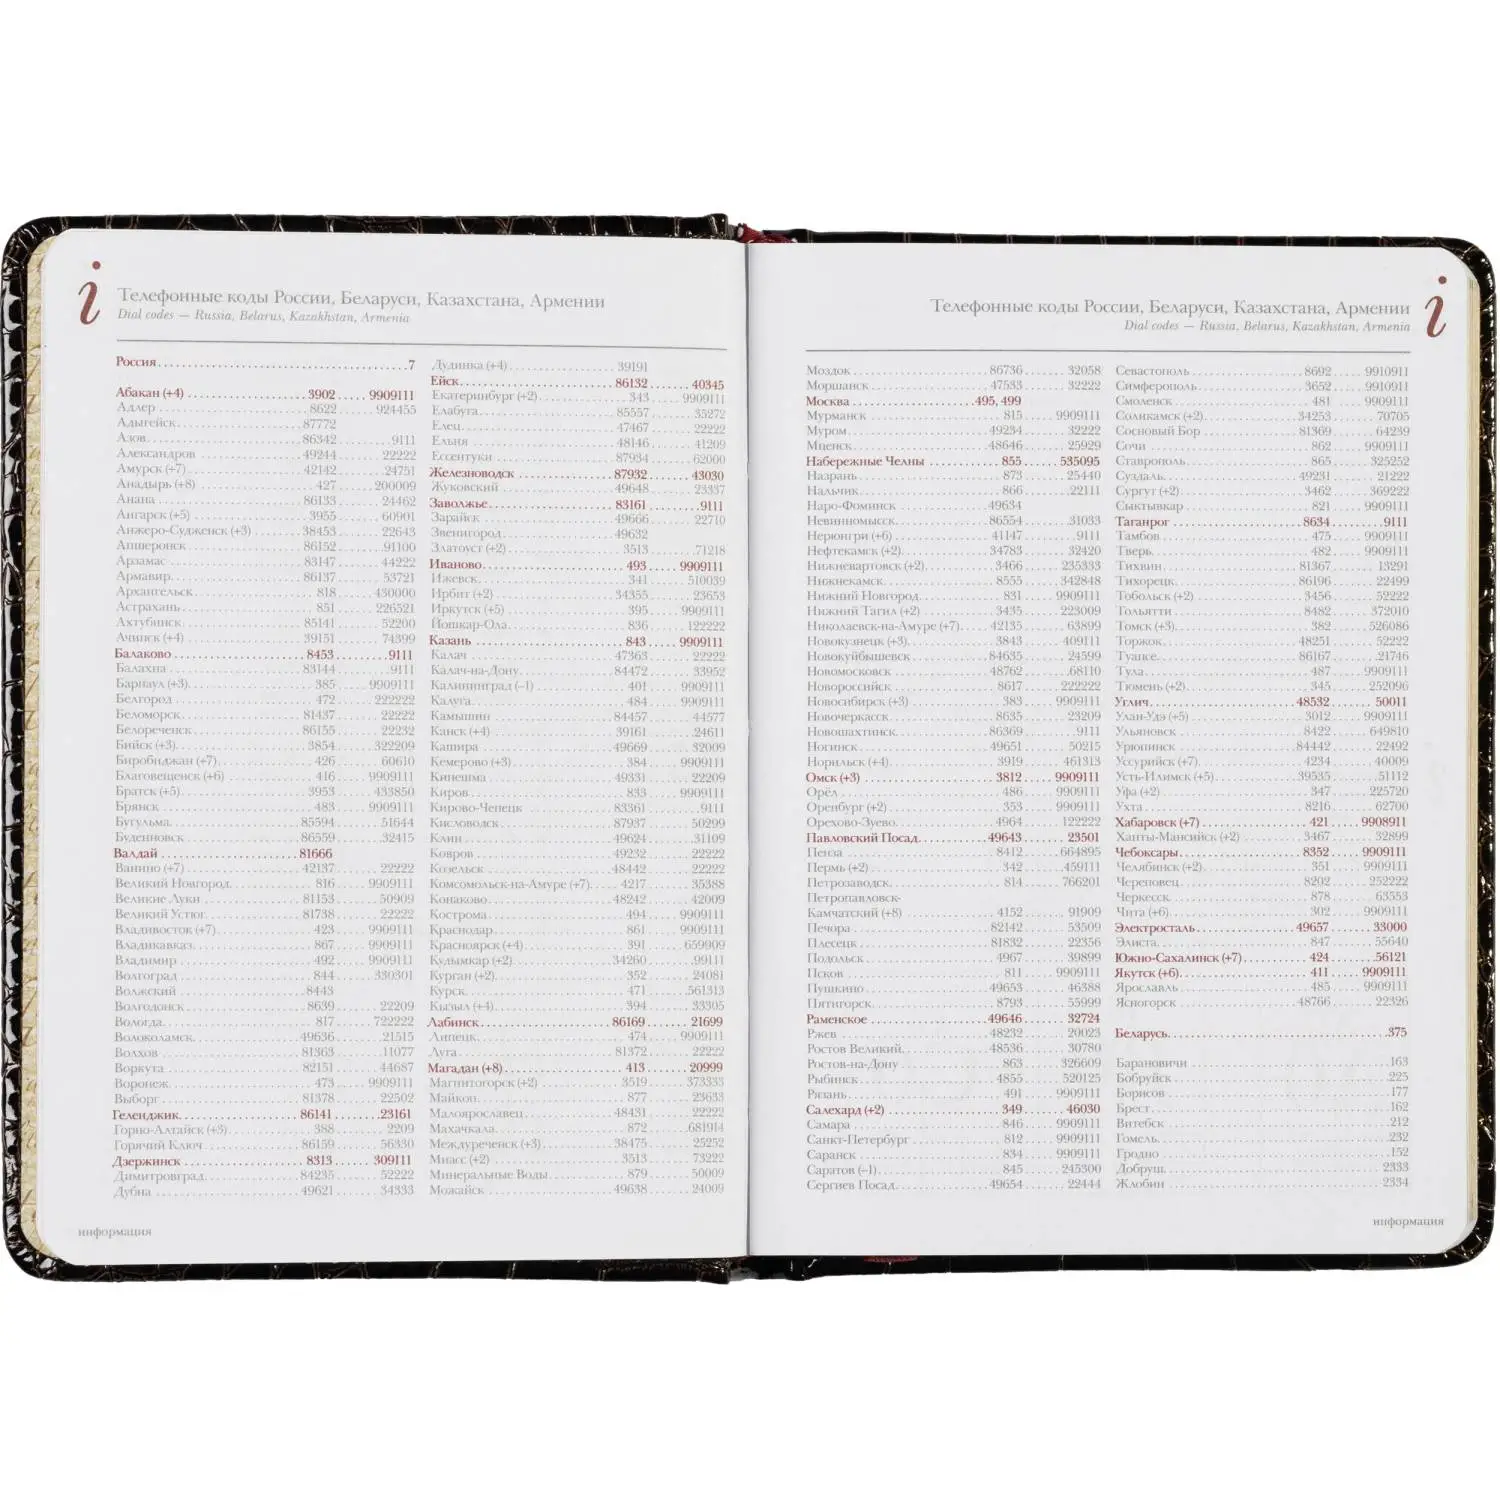 i
Телефонные коды России, Беларуси, Казахстана, Армении
Dial codes — Russia, Belarus, Kazakhstan, Armenia
Россия 7
Абакан (+4) 3902 9909111
Адлер 8622 924455
Адыгейск 87772
Азов 86342 9111
Александров 49244 22222
Амурск (+7) 42142 24751
Анадырь (+8) 427 200009
Анапа 86133 24462
Ангарск (+5) 3955 60901
Анжеро-Судженск (+3) 38453 22643
Апшеронск 86152 91100
Арзамас 83147 44222
Армавир 86137 53721
Архангельск 818 430000
Астрахань 851 226521
Ахтубинск 85141 52200
Ачинск (+4) 39151 74399
Балаково 8453 9111
Балахна 83144 9111
Барнаул (+3) 385 9909111
Белгород 472 222222
Беломорск 81437 22222
Белореченск 86155 22232
Бийск (+3) 3854 322209
Биробиджан (+7) 426 60610
Благовещенск (+6) 416 9909111
Братск (+5) 3953 433850
Брянск 483 9909111
Бугульма 85594 51644
Буденновск 86559 32415
Валдай 81666
Ванино (+7) 42137 22222
Великий Новгород 816 9909111
Великие Луки 81153 50909
Великий Устюг 81738 22222
Владивосток (+7) 423 9909111
Владикавказ 867 9909111
Владимир 492 9909111
Волгоград 844 330301
Волжский 8443
Волгодонск 8639 22209
Вологда 817 722222
Волоколамск 49636 21515
Волхов 81363 11077
Воркута 82151 44687
Воронеж 473 9909111
Выборг 81378 22502
Геленджик 86141 23161
Горно-Алтайск (+3) 388 2209
Горячий Ключ 86159 56330
Дзержинск 8313 309111
Димитровград 84235 52222
Дубна 49621 34333
Дудинка (+4) 39191
Ейск 86132 40345
Екатеринбург (+2) 343 9909111
Елабуга 85557 35272
Елец 47467 22222
Ельня 48146 41209
Ессентуки 87934 62000
Железноводск 87932 43030
Жуковский 49648 23337
Заволжье 83161 9111
Зарайск 49666 22710
Звенигород 49632
Златоуст (+2) 3513 71218
Иваново 493 9909111
Ижевск 341 510039
Ирбит (+2) 34355 23653
Иркутск (+5) 395 9909111
Йошкар-Ола 836 122222
Казань 843 9909111
Калач 47363 22222
Калач-на-Дону 84472 33952
Калининград (–1) 401 9909111
Калуга 484 9909111
Камышин 84457 44577
Канск (+4) 39161 24611
Кашира 49669 32009
Кемерово (+3) 384 9909111
Кинешма 49331 22209
Киров 833 9909111
Кирово-Чепецк 83361 9111
Кисловодск 87937 50299
Клин 49624 31109
Ковров 49232 22222
Козельск 48442 22222
Комсомольск-на-Амуре (+7) 4217 35388
Конаково 48242 42009
Кострома 494 9909111
Краснодар 861 9909111
Красноярск (+4) 391 659909
Кудымкар (+2) 34260 99111
Курган (+2) 352 24081
Курск 471 561313
Кызыл (+4) 394 33305
Лабинск 86169 21699
Липецк 474 9909111
Луга 81372 22222
Магадан (+8) 413 20999
Магнитогорск (+2) 3519 373333
Майкоп 877 23633
Малоярославец 48431 22222
Махачкала 872 681914
Междуреченск (+3) 38475 25252
Миасс (+2) 3513 73222
Минеральные Воды 879 50009
Можайск 49638 24009
информация
i
Телефонные коды России, Беларуси, Казахстана, Армении
Dial codes — Russia, Belarus, Kazakhstan, Armenia
Моздок 86736 32058
Моршанск 47533 32222
Москва 495, 499
Мурманск 815 9909111
Муром 49234 32222
Мценск 48646 25929
Набережные Челны 855 535095
Назрань 873 25440
Нальчик 866 22111
Наро-Фоминск 49634
Невинномысск 86554 31033
Нерюнгри (+6) 41147 9111
Нефтекамск (+2) 34783 32420
Нижневартовск (+2) 3466 235333
Нижнекамск 8555 342848
Нижний Новгород 831 9909111
Нижний Тагил (+2) 3435 223009
Николаевск-на-Амуре (+7) 42135 63899
Новокузнецк (+3) 3843 409111
Новокуйбышевск 84635 24599
Новомосковск 48762 68110
Новороссийск 8617 222222
Новосибирск (+3) 383 9909111
Новочеркасск 8635 23209
Новошахтинск 86369 9111
Ногинск 49651 50215
Норильск (+4) 3919 461313
Омск (+3) 3812 9909111
Орёл 486 9909111
Оренбург (+2) 353 9909111
Орехово-Зуево 4964 122222
Павловский Посад 49643 23501
Пенза 8412 664895
Пермь (+2) 342 459111
Петрозаводск 814 766201
Петропавловск-
Камчатский (+8) 4152 91909
Печора 82142 53509
Плесецк 81832 22356
Подольск 4967 39899
Псков 811 9909111
Пушкино 49653 46388
Пятигорск 8793 55999
Раменское 49646 32724
Ржев 48232 20023
Ростов Великий 48536 30780
Ростов-на-Дону 863 326609
Рыбинск 4855 520125
Рязань 491 9909111
Салехард (+2) 349 46030
Самара 846 9909111
Санкт-Петербург 812 9909111
Саранск 834 9909111
Саратов (–1) 845 245300
Сергиев Посад 49654 22444
Севастополь 8692 9910911
Симферополь 3652 9910911
Смоленск 481 9909111
Соликамск (+2) 34253 70705
Сосновый Бор 81369 64239
Сочи 862 9909111
Ставрополь 865 325252
Суздаль 49231 21222
Сургут (+2) 3462 369222
Сыктывкар 821 9909111
Таганрог 8634 9111
Тамбов 475 9909111
Тверь 482 9909111
Тихвин 81367 13291
Тихорецк 86196 22499
Тобольск (+2) 3456 52222
Тольятти 8482 372010
Томск (+3) 382 526086
Торжок 48251 52222
Туапсе 86167 21746
Тула 487 9909111
Тюмень (+2) 345 252096
Углич 48532 50011
Улан-Удэ (+5) 3012 9909111
Ульяновск 8422 649810
Урюпинск 84442 22492
Уссурийск (+7) 4234 40009
Усть-Илимск (+5) 39535 51112
Уфа (+2) 347 225720
Ухта 8216 62700
Хабаровск (+7) 421 9908911
Ханты-Мансийск (+2) 3467 32899
Чебоксары 8352 9909111
Челябинск (+2) 351 9909111
Череповец 8202 252222
Черкесск 878 63553
Чита (+6) 302 9909111
Электросталь 49657 33000
Элиста 847 55640
Южно-Сахалинск (+7) 424 56121
Якутск (+6) 411 9909111
Ярославль 485 9909111
Ясногорск 48766 22326
Беларусь 375
Барановичи 163
Бобруйск 225
Борисов 177
Брест 162
Витебск 212
Гомель 232
Гродно 152
Добруш 2333
Жлобин 2334
информация